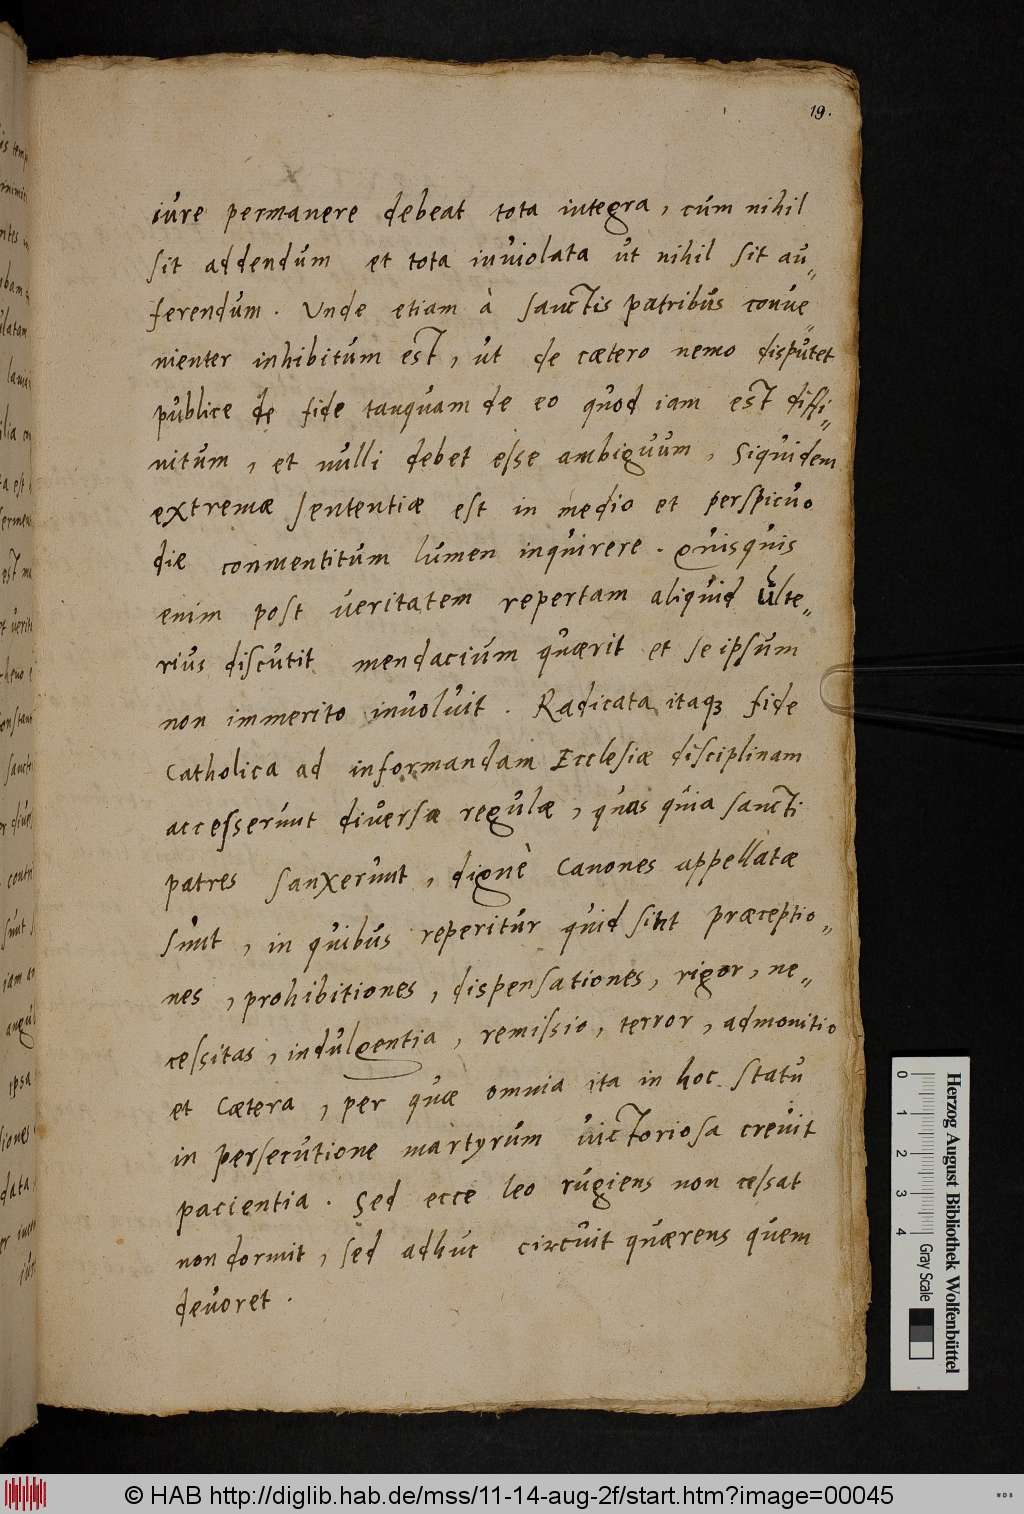 19.
iure permanere debeat tota integra, cum nihil
sit addendum et tota inuiolata ut nihil sit au„
ferendum. Unde etiam à sanctis patribus conue„
nienter inhibitum est, ut de cætero nemo disputet
publice de fide tanquam de eo quod iam est diffi„
nitum, et nulli debet esse ambiguum, siquidem
extremæ sententiæ est in medio et perspicuo
die conmentitum lumen inquirere. Quisquis
enim post veritatem repertam aliquid ulte„
rius discutit mendacium quærit et se ipsum
non immerito inuoluit. Radicata itaqꝫ fide
Catholica ad informandam Ecclesiæ disciplinam
accesserunt diuersæ regulæ, quas quia sancti
patres sanxerunt, dignè Canones appellatæ
sunt, in quibus reperitur quid sint præceptio„
nes, prohibitiones, dispensationes, rigor, ne„
cessitas, indulgentia, remissio, terror, admonitio
et cætera, per quæ omnia ita in hoc statu
in persecutione martyrum uictoriosa creuit
pacientia. Sed ecce leo rugiens non cessat
non dormit, sed adhuc circuit quærens quem
deuoret.
Herzog August Bibliothek Wolfenbüttel
0 1 2 3 4 Gray Scale
© HAB http://diglib.hab.de/mss/11-14-aug-2f/start.htm?image=00045